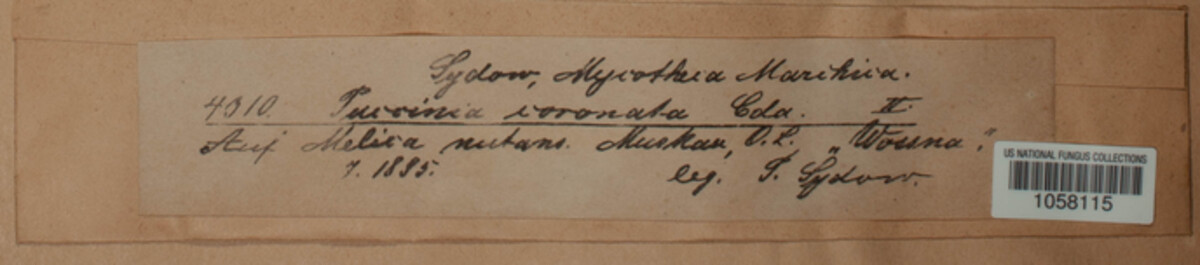 Sydow, Mycotheca Marchica.
4310. Puccinia coronata Cda. II.
Auf Melica nutans. Muskau, O. L. „Wussina".
7. 1885. leg. P. Sydow.
US NATIONAL FUNGUS COLLECTIONS
1058115